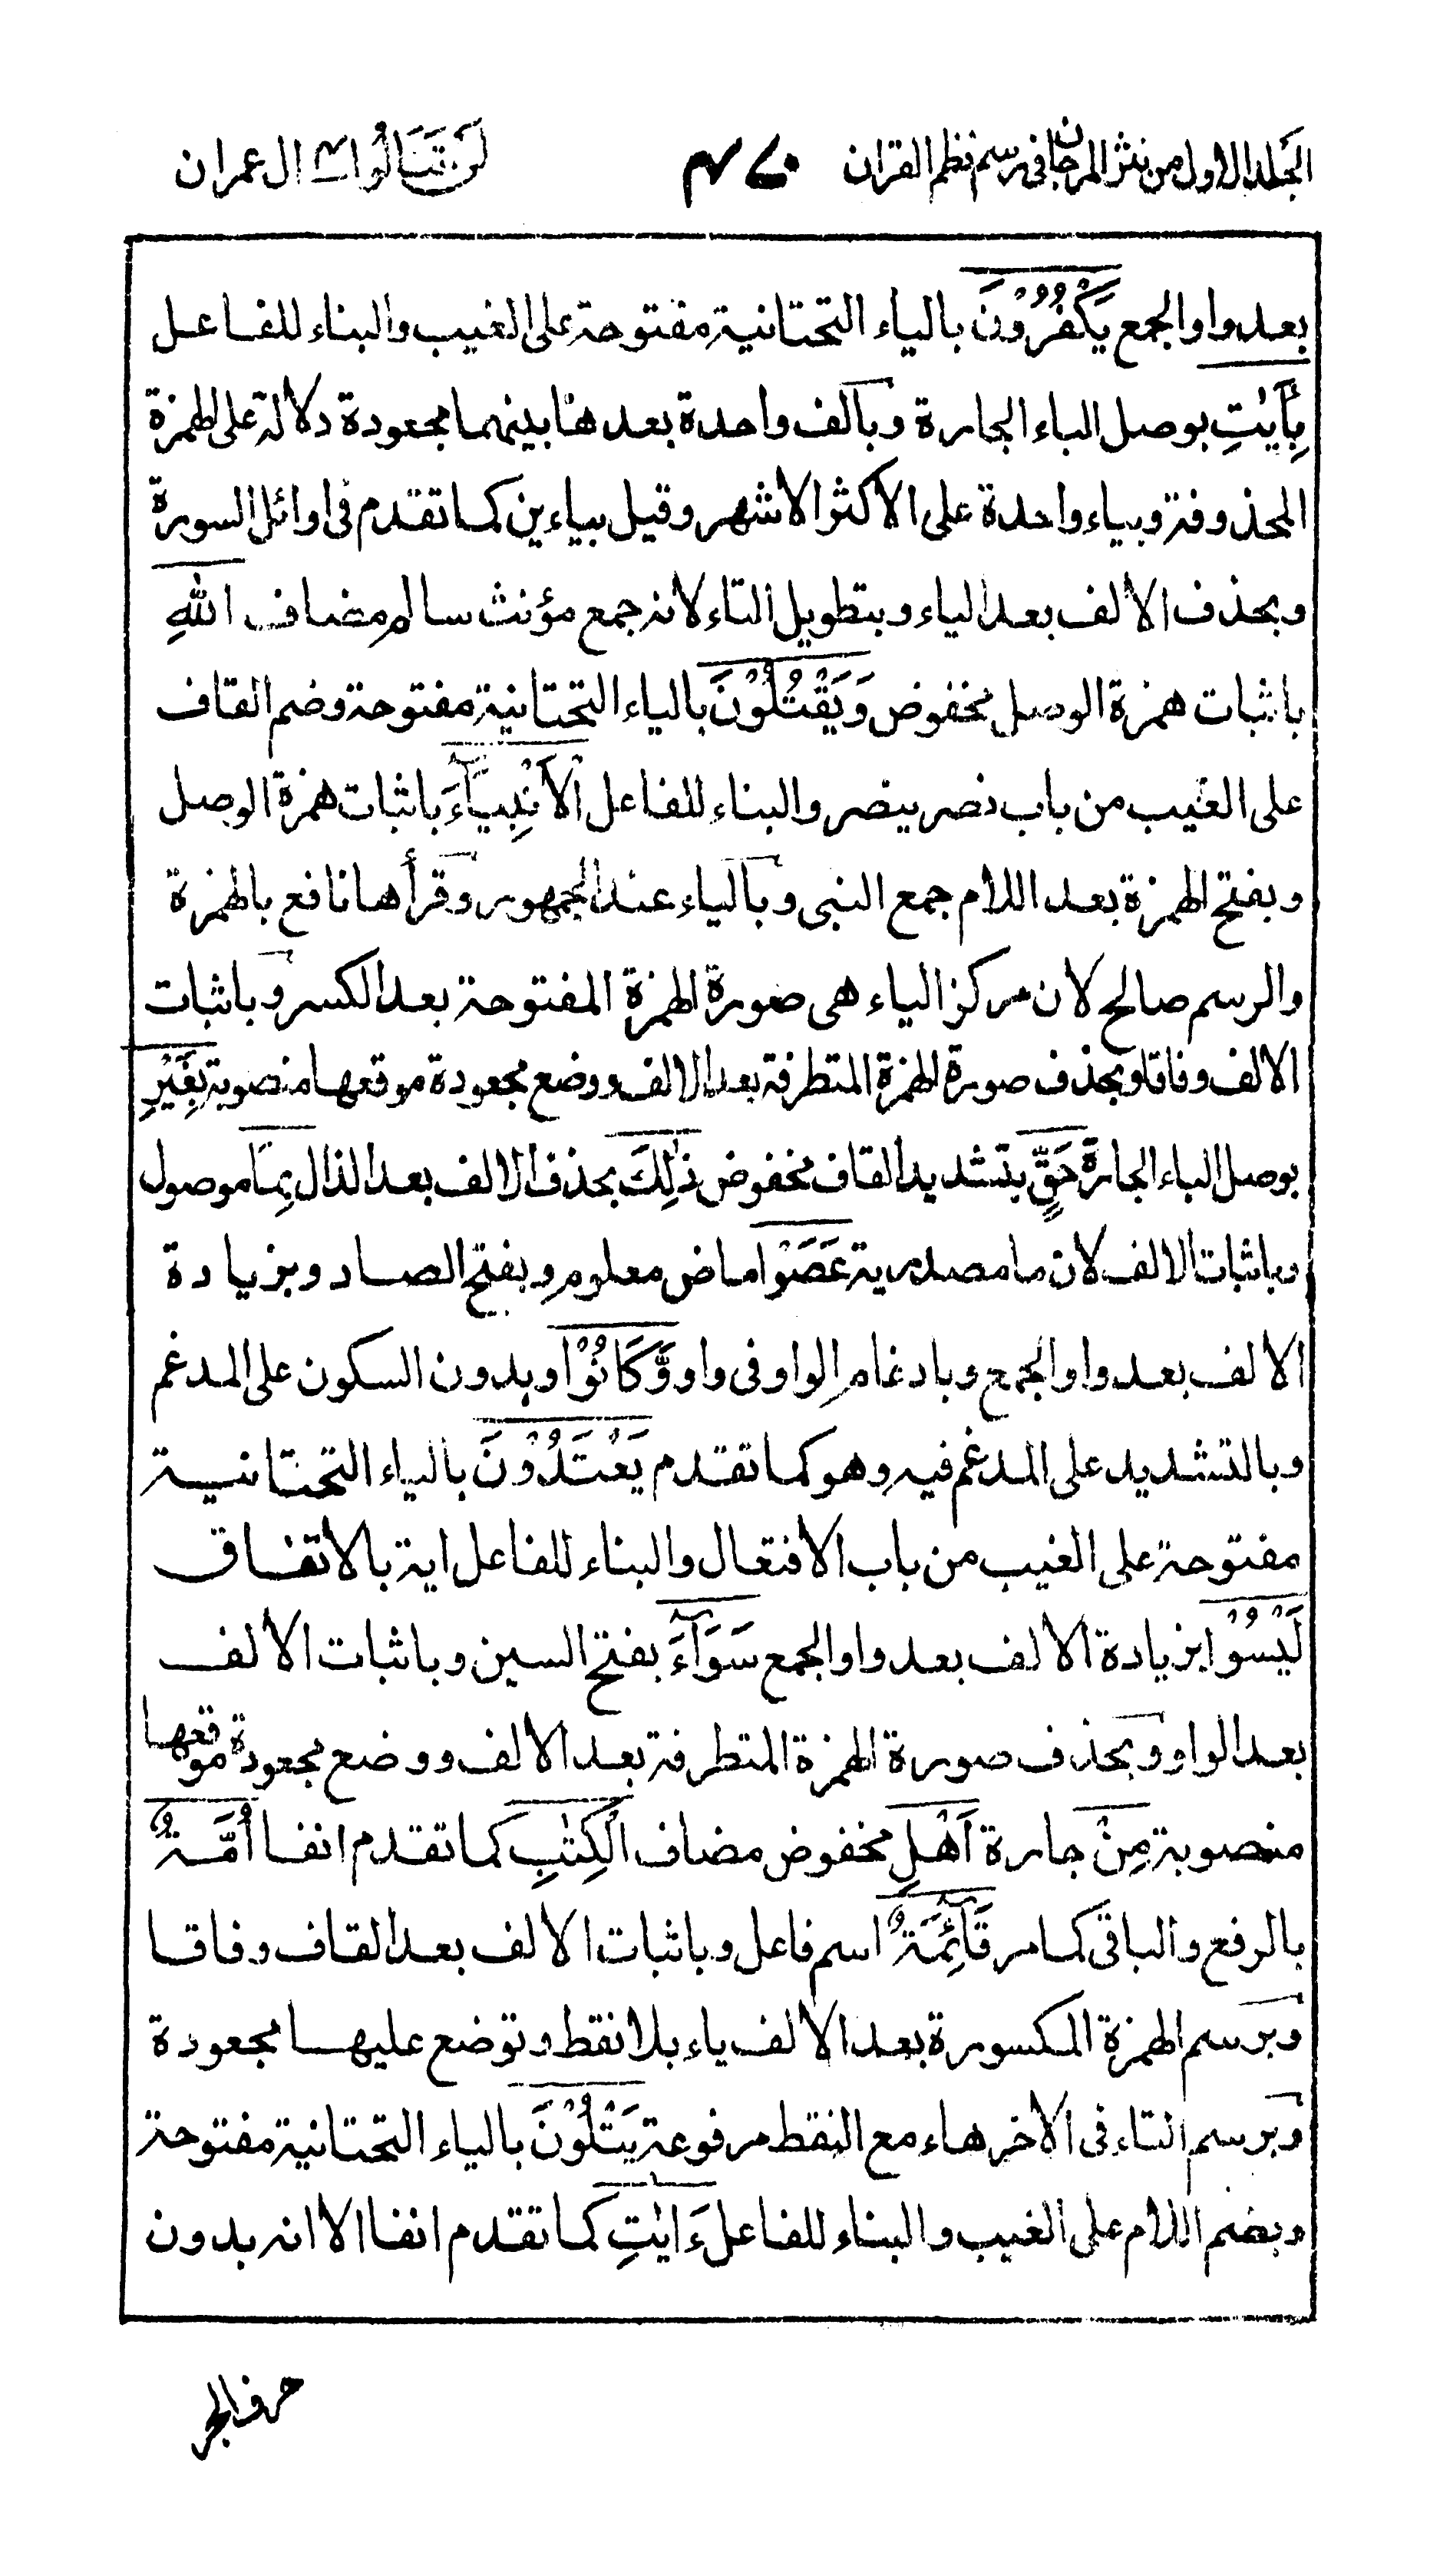 الجلد الاول من نثر المرجان فى رسم نظم القران ٤٧٠ لن تنالوا ٤ ال عمران
بعد واو الجمع يَكْفُرُوْنَ بالياء التحتانية مفتوحة على الغيب والبناء للفاعل
بِأٰيٰتِ بوصل الباء الجارة وبالف واحدة بعدها بينهما مجعودة دلالة على الهمزة
المحذوفة وبياء واحدة على الاكثر الاشهر وقيل بياءين كما تقدم فى اوائل السورة
وبحذف الالف بعد الياء وبتطويل التاء لانه جمع مؤنث سالم مضاف اللهِ
باثبات همزة الوصل مخفوض وَيَقْتُلُوْنَ بالياء التحتانية مفتوحة وضم القاف
على الغيب من باب نصر ينصر والبناء للفاعل الْاَنْۢبِيَآءَ باثبات همزة الوصل
وبفتح الهمزة بعد اللام جمع النبى وبالياء عند الجمهور وقرأها نافع بالهمزة
والرسم صالح لان مركز الياء هى صورة الهمزة المفتوحة بعد الكسر وباثبات
الالف وفاقا وبحذف صورة الهمزة المتطرفة بعد الالف ووضع مجعودة موقعها منصوبة بِغَيْرِ
بوصل الباء الجارة حَقٍّ بتشديد القاف مخفوض ذٰلِكَ بحذف الالف بعد الذال بِمَا موصول
وباثبات الالف لان ما مصدرية عَصَوْا ماض معلوم وبفتح الصاد وبزيادة
الالف بعد واو الجمع وبادغام الواو فى واو وَّكَانُوْا وبدون السكون على المدغم
وبالتشديد على المدغم فيه وهو كما تقدم يَعْتَدُوْنَ بالياء التحتانية
مفتوحة على الغيب من باب الافتعال والبناء للفاعل اية بالاتفاق
لَيْسُوْا بزيادة الالف بعد واو الجمع سَوَآءً بفتح السين وباثبات الالف
بعد الواو وبحذف صورة الهمزة المتطرفة بعد الالف ووضع مجعودة موقعها
منصوبة مِنْ جارة اَهْلِ مخفوض مضاف الْكِتٰبِ كما تقدم انفا اُمَّةٌ
بالرفع والباقى كما مر قَآئِمَةٌ اسم فاعل وباثبات الالف بعد القاف وفاقا
وبرسم الهمزة المكسورة بعد الالف ياء بلا نقط وتوضع عليها مجعودة
وبرسم التاء فى الاخر هاء مع النقط مرفوعة يَتْلُوْنَ بالياء التحتانية مفتوحة
وبضم اللام على الغيب والبناء للفاعل ءَايٰتِ كما تقدم انفا الا انه بدون
حرف الجر